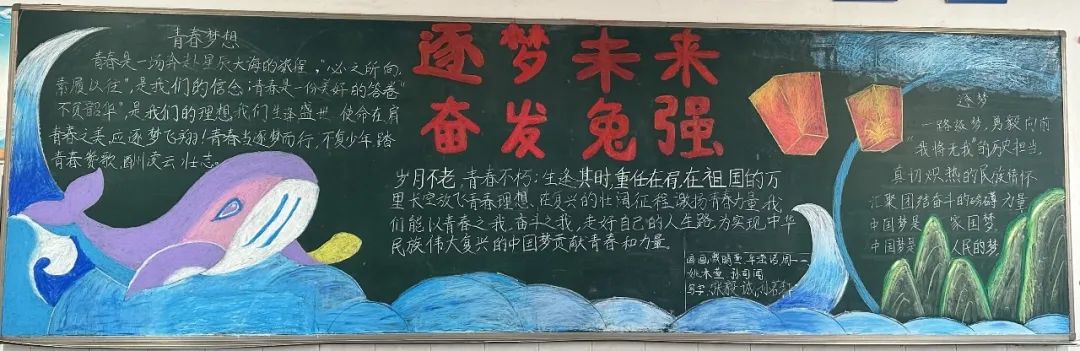 青春梦想
青春是一场奔赴星辰大海的
素履以往"是我们的信念;青春是一份美好的答卷
不负韶华"是我们的理想,我们生逢盛世 使命在肩
青春之美,应逐梦飞翔!青春当逐梦而行,不负少年,踏
青春赞歌,酬凌云壮志。
逐梦未来
奋发兔强
岁月不老,青春不朽;生逢其时,重任在肩,在祖国的万
里长空放飞青春理想,在复兴的壮阔征程,激扬青春力量,我
们能以青春之我,奋斗之我,走好自己的人生路,为实现中华
民族伟大复兴的中国梦贡献青春和力量
逐梦
一路逐梦,勇毅向前
"我将无我"的历史担当,
真切炽热的民族情怀
汇聚团结奋斗的磅礴力量
中国梦是 家国梦,
中国梦是 人民的梦,